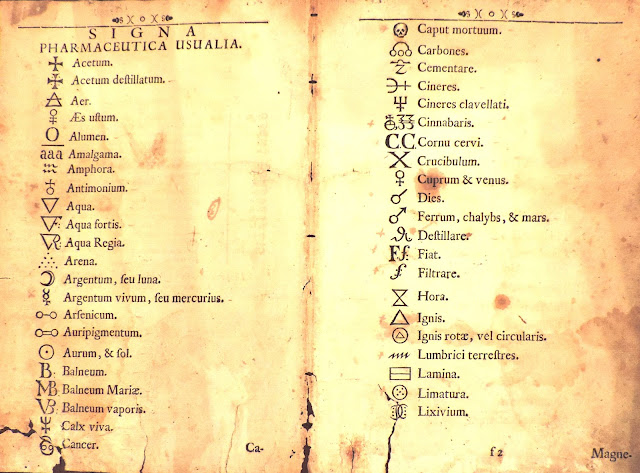 SIGNA
PHARMACEUTICA USUALIA.
Acetum.
Acetum deſtillatum.
Aer.
Æs uſtum.
Alumen.
aaa Amalgama.
Amphora.
Antimonium.
Aqua.
Aqua fortis.
Aqua Regia.
Arena.
Argentum, ſeu luna.
Argentum vivum, ſeu mercurius.
Arſenicum.
Auripigmentum.
Aurum, & ſol.
B. Balneum.
MB Balneum Mariæ.
VB Balneum vaporis.
Calx viva.
Cancer.
Ca-
Caput mortuum.
Carbones.
Cementare.
Cineres.
Cineres clavellati.
Cinnabaris.
CC. Cornu cervi.
Crucibulum.
Cuprum & venus.
Dies.
Ferrum, chalybs, & mars.
Deſtillare.
Ff. Fiat.
f Filtrare.
Hora.
Ignis.
Ignis rotæ, vel circularis.
Lumbrici terreſtres.
Lamina.
Limatura.
Lixivium.
f 2
Magne-